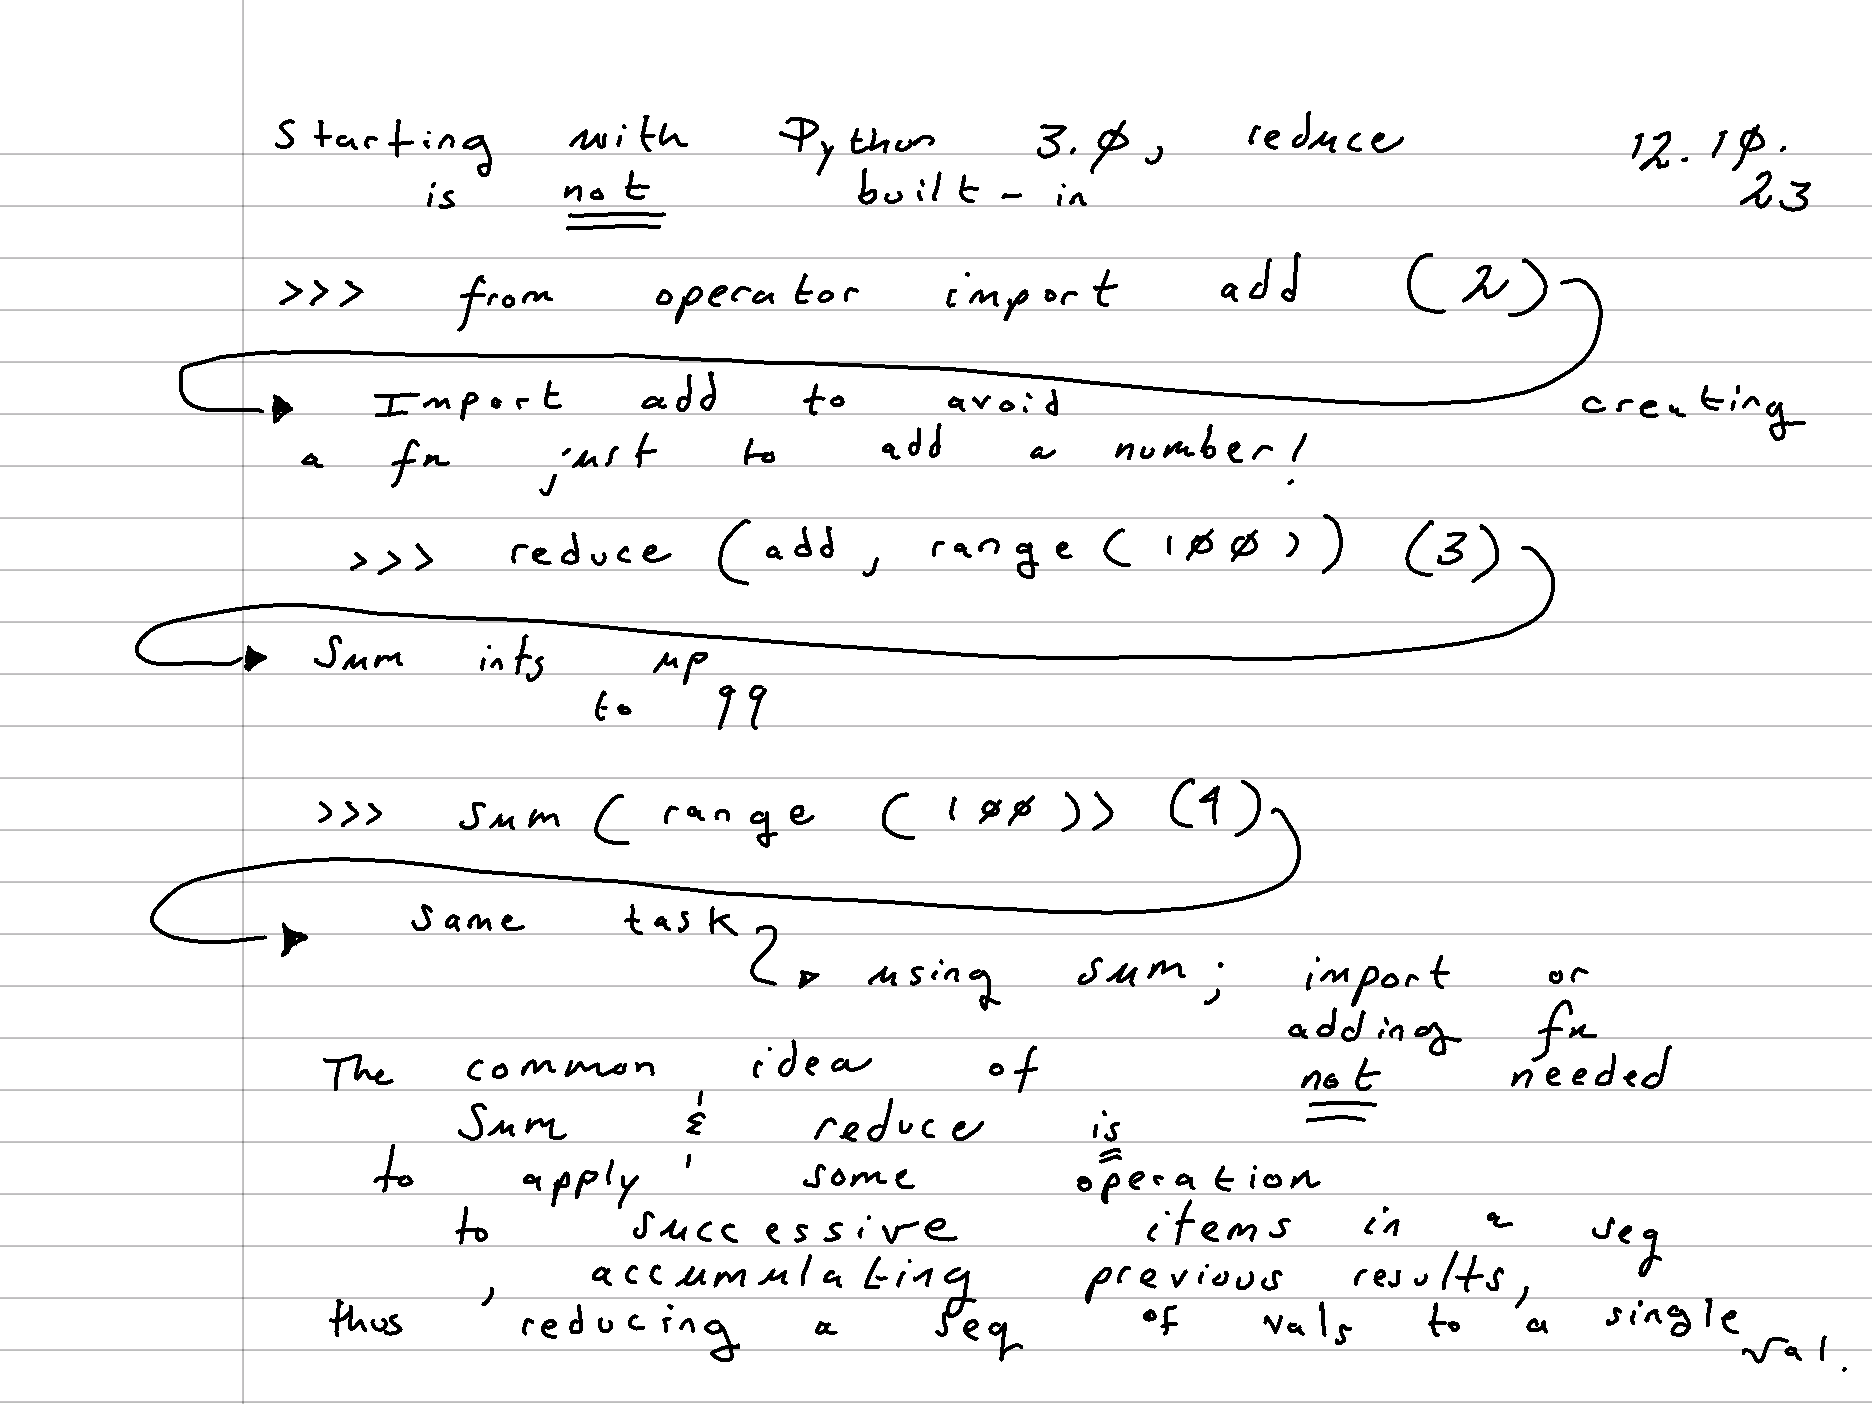 Starting with Python 3.0, reduce 12.10.
is not built-in 23
>>> from operator import add (2)
Import add to avoid creating
a fn just to add a number!
>>> reduce (add, range(100)) (3)
Sum ints up
to 99
>>> sum(range (100)) (4)
Same task
using sum; import or
adding fn
The common idea of not needed
Sum & reduce is
to apply some operation
to successive items in a seq
, accumulating previous results,
thus reducing a seq of vals to a single
val.